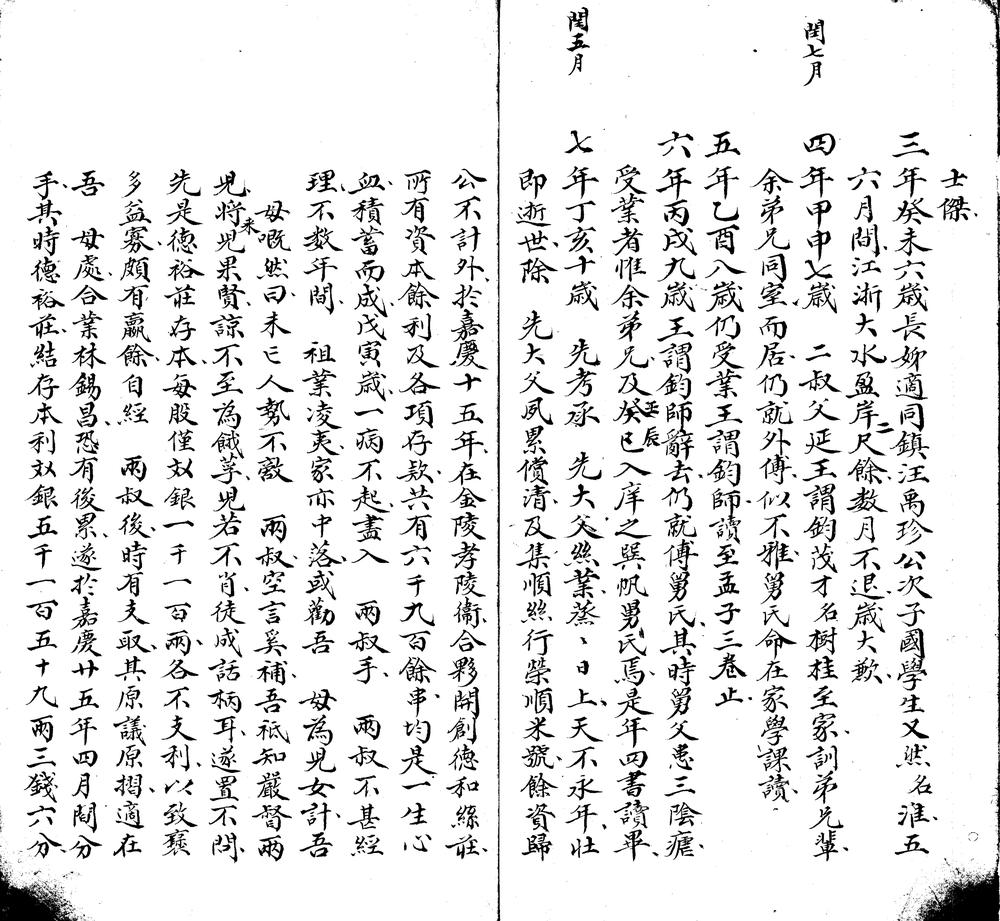 士傑
三年癸未六歲長姊適同鎮汪禹珍公次子國學生又然名淮五
六月間江浙大水盈岸二尺餘数月不退歲大歉
閏七月
四年甲申七歲 二叔父延王謂鈞茂才名樹桂至家訓弟兄輩
余弟兄同室而居仍就外傅似不雅舅氏命在家學課讀
五年乙酉八歲仍受業王謂鈞師讀至孟子三卷止
六年丙戌九歲王謂鈞師辭去仍就傅舅氏其時舅父患三陰瘧
受業者惟余弟兄及癸巳壬辰入庠之巽帆舅氏焉是年四書讀畢
閏五月
七年丁亥十歲 先考承 先大父絲業蒸〻日上天不永年壯
即逝世除 先大父夙累償清及集順絲行榮順米號餘資歸
公不計外於嘉慶十五年在金陵孝陵衞合夥開創德和絲莊
所有資本餘利及各項存款共有六千九百餘串均是一生心
血積蓄而成戊寅歲一病不起盡入 兩叔手 兩叔不甚經
理不数年間 祖業凌夷家亦中落或勸吾 母為兒女計吾
母嘅然曰未亡人勢不敵 兩叔空言奚補吾祗知嚴督兩
兒將來兒果賢諒不至為餓莩兒若不肖徒成話柄耳遂置不問
先是德裕莊存本每股僅玅銀一千一百兩各不支利以致裒
多益寡頗有贏餘自經 兩叔後時有支取其原議原摺適在
吾 母處合業林錫昌恐有後累遂於嘉慶廿五年四月間分
手其時德裕莊結存本利玅銀五千一百五十九兩三錢六分